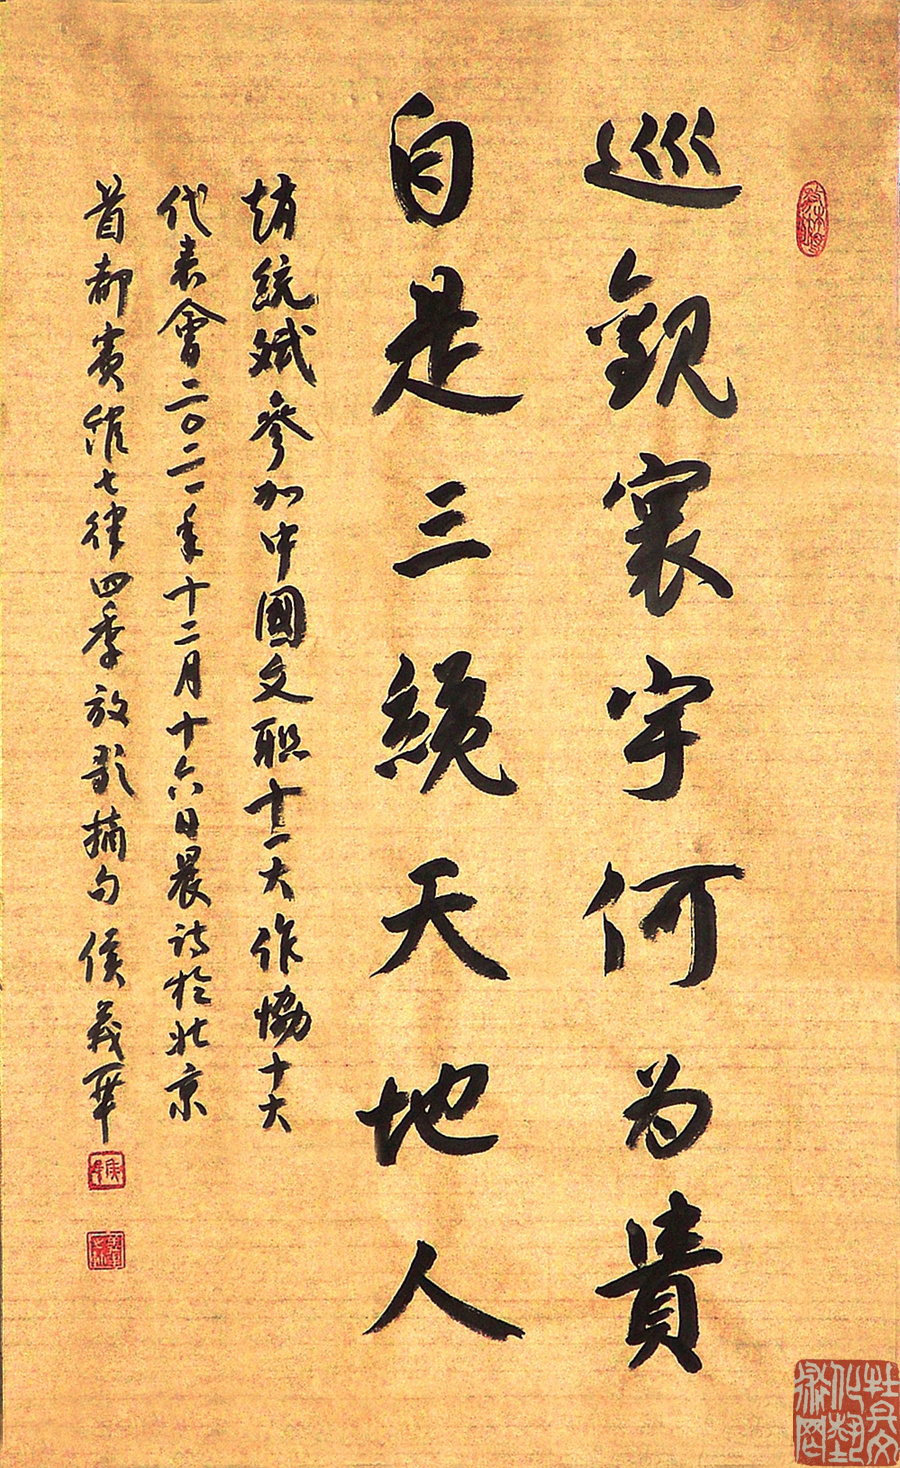 巡觀寰宇何为貴
自是三統天地人
趙統斌參加中國文联十一大作協十大
代表會二〇二一年十二月十六日晨诗於北京
首都賓館七律四季放歌摘句 侯義華
牡丹文
化藝
術网